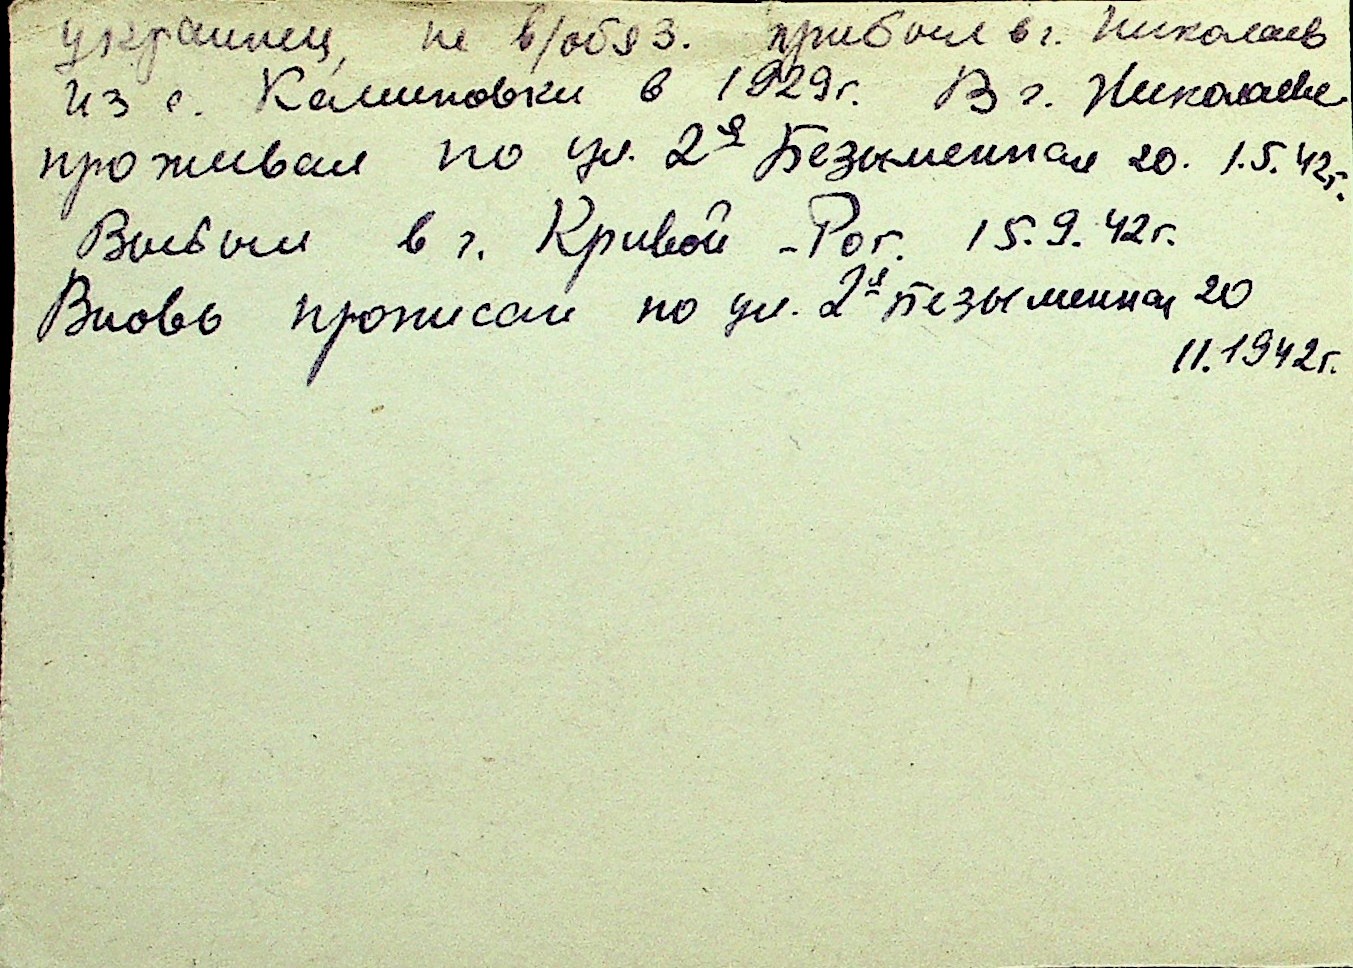 украинец, не в/обяз. прибыл в г. Николаев
из с. Калиновки в 1929г. В г. Николаеве
проживал по ул. 2я Безыменная 20. 1.5.42г.
Выбыл в г. Кривой-Рог. 15.9.42г.
Вновь прописан по ул. 2я Безыменная 20
11.1942г.